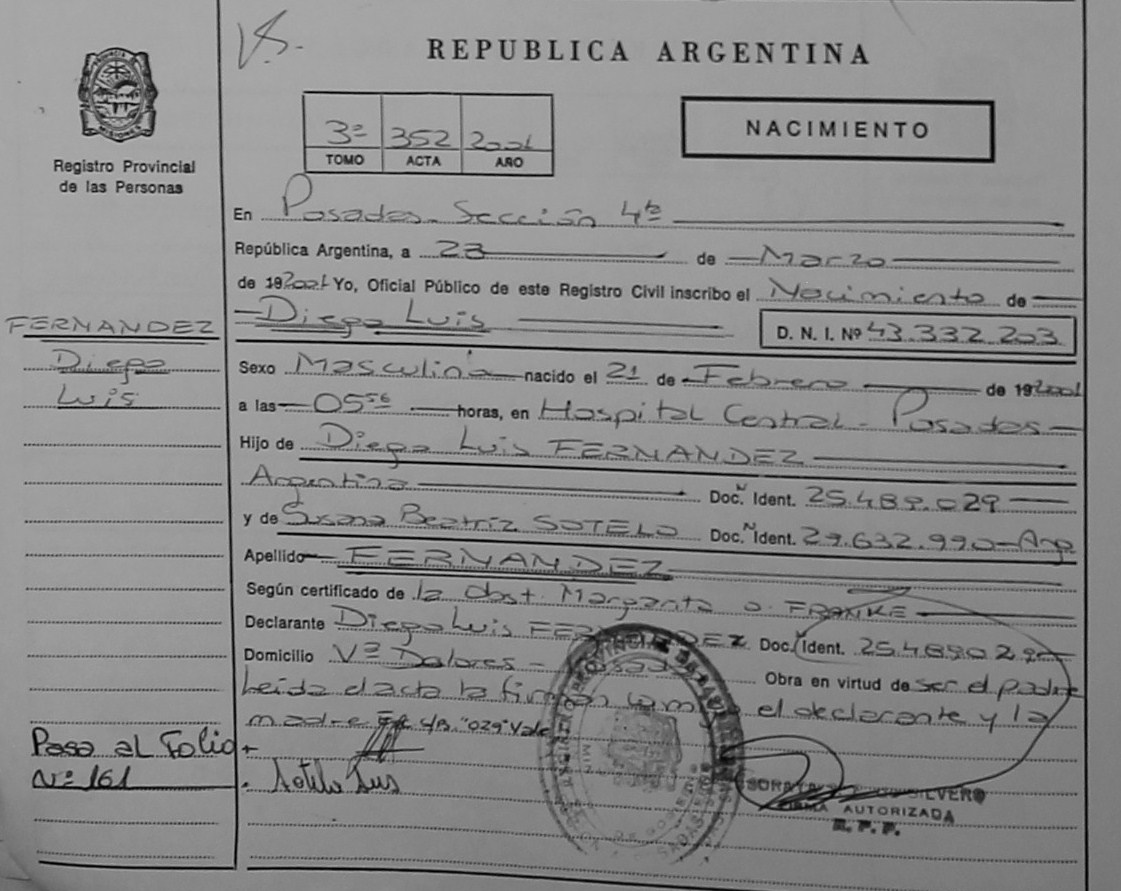 VS.
REPUBLICA ARGENTINA
PROVINCIA DE MISIONES
Registro Provincial
de las Personas
3º 352 2001
TOMO ACTA AÑO
NACIMIENTO
En Posadas - Sección 4ta
República Argentina, a 23 de Marzo
de 192001 Yo, Oficial Público de este Registro Civil inscribo el Nacimiento de
Diego Luis D. N. I. Nº 43.332.203
FERNANDEZ
Diego
Luis
Sexo Masculino nacido el 21 de Febrero de 192001
a las 05 56 horas, en Hospital Central - Posadas
Hijo de Diego Luis FERNANDEZ
Argentino Doc. N Ident. 25.489.029
y de Susana Beatriz SOTELO Doc. N Ident. 29.632.990 - Arg
Apellido FERNANDEZ
Según certificado de la Obst. Margarita O. FRANKE
Declarante Diego Luis FERNANDEZ Doc. N Ident. 25.489.029
Domicilio Vª Dolores - Posadas Obra en virtud de ser el padre
Leída el acta la firman el declarante y la
madre S/R. "029" Vale
Pasa al Folio
Nº 161
Sotelo Sus
SORAYA SILVERO
FIRMA AUTORIZADA
R. P. P.